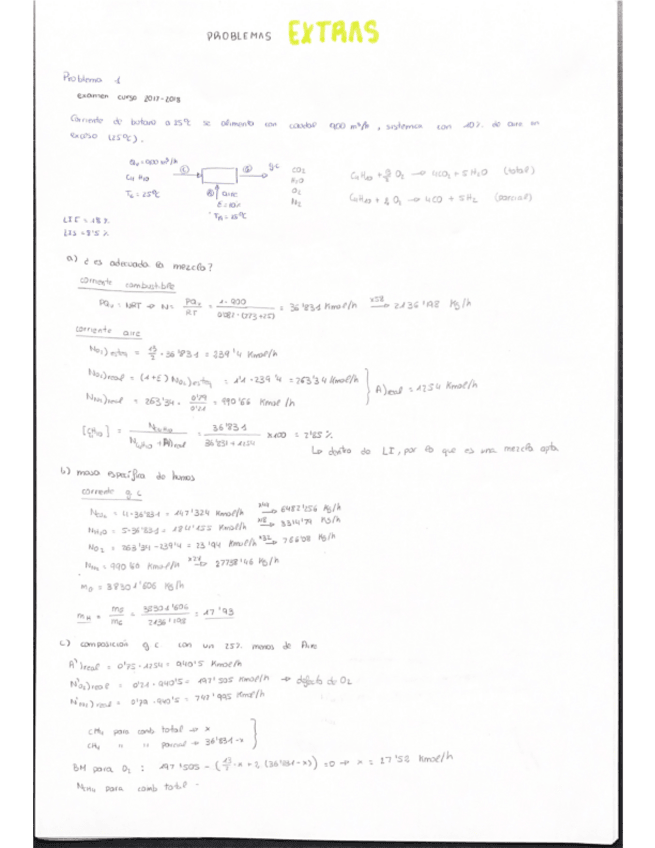 PROBLEMAS EXTRAS
Problema 1
examen curso 2017-2018
Corriente de butano a 25ºC se alimenta con caudal 900 m³/h, sistemas con 10% de aire en
exceso (25ºC).
Qv = 900 m³/h
C4H10
Tc = 25ºC
① ③ g.c
② aire
E = 10%
TA = 25ºC
CO2
H2O
O2
N2
C4H10 + 13/2 O2 → 4CO2 + 5H2O (total)
C4H10 + 2 O2 → 4CO + 5H2 (parcial)
LII = 1'8%
LIS = 8'5%
a) ¿es adecuada la mezcla?
corriente combustible
PQv = NRT → N = PQv/RT = 1·900/0'082·(273+25) = 36'831 Kmol/h x58→ 2136'198 Kg/h
corriente aire
NO2)esteq = 13/2 · 36'831 = 239'4 Kmol/h
NO2)real = (1+E) NO2)esteq = 1'1 · 239'4 = 263'34 Kmol/h
NN2)real = 263'34 · 0'79/0'21 = 990'66 Kmol/h
A)real = 1254 Kmol/h
[C4H10] = NC4H10/NC4H10 + A)real = 36'831/36'831 + 1254 x100 = 2'85%
Lo dentro de LI, por lo que es una mezcla apta.
b) masa específica de humos
corriente g.c
NCO2 = 4·36'831 = 147'324 Kmol/h x44→ 6482'256 Kg/h
NH2O = 5·36'831 = 184'155 Kmol/h x18→ 3314'79 Kg/h
NO2 = 263'34 - 239'4 = 23'94 Kmol/h x32→ 766'08 Kg/h
NN2 = 990'66 Kmol/h x28→ 27738'46 Kg/h
mG = 38301'606 Kg/h
mH = mG/mC = 38301'606/2136'198 = 17'93
c) composición g.c. con un 25% menos de Aire
A')real = 0'75 · 1254 = 940'5 Kmol/h
N'O2)real = 0'21 · 940'5 = 197'505 Kmol/h → defecto de O2
N'N2)real = 0'79 · 940'5 = 742'995 Kmol/h
CH4 para comb total → x
CH4 " " parcial → 36'831 - x
BM para O2: 197'505 - (13/2 · x + 2 (36'831 - x)) = 0 → x = 27'52 Kmol/h
para comb total